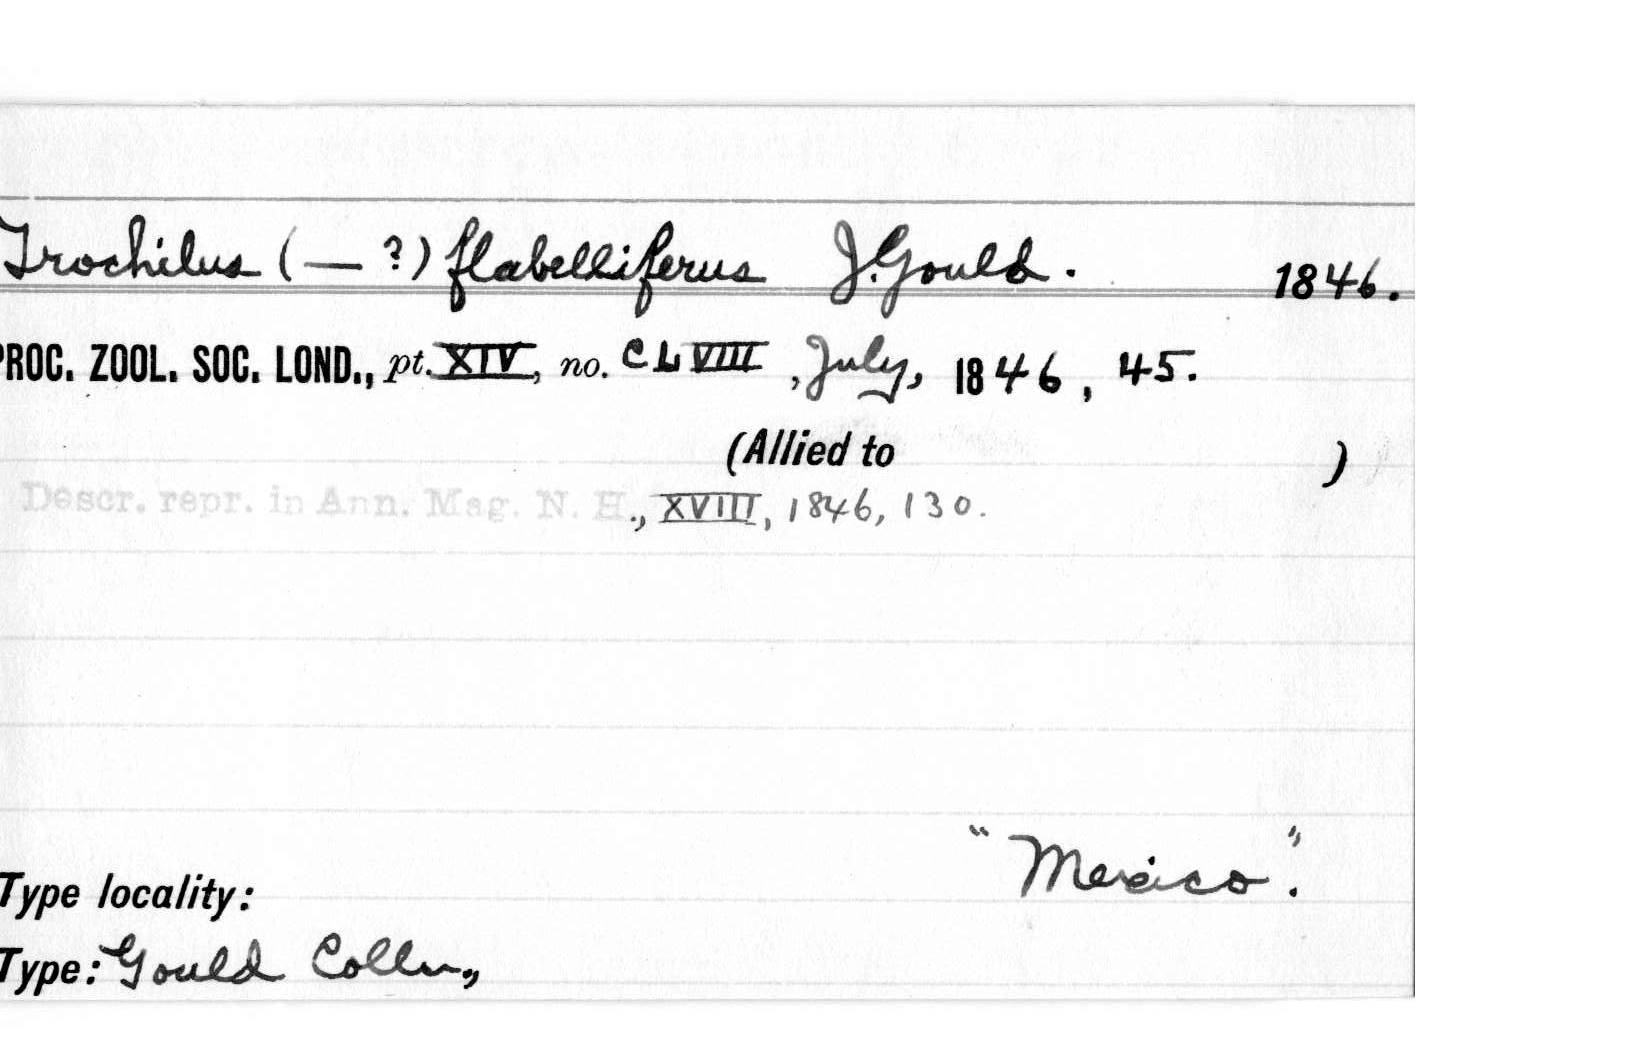 Trochilus (— ?) flabelliferus J. Gould. 1846.
PROC. ZOOL. SOC. LOND., pt. XIV, no. CLVIII, July, 1846, 45.
(Allied to )
Descr. repr. in Ann. Mag. N. H., XVIII, 1846, 130.
"Mexico".
Type locality:
Type: Gould Colln.,